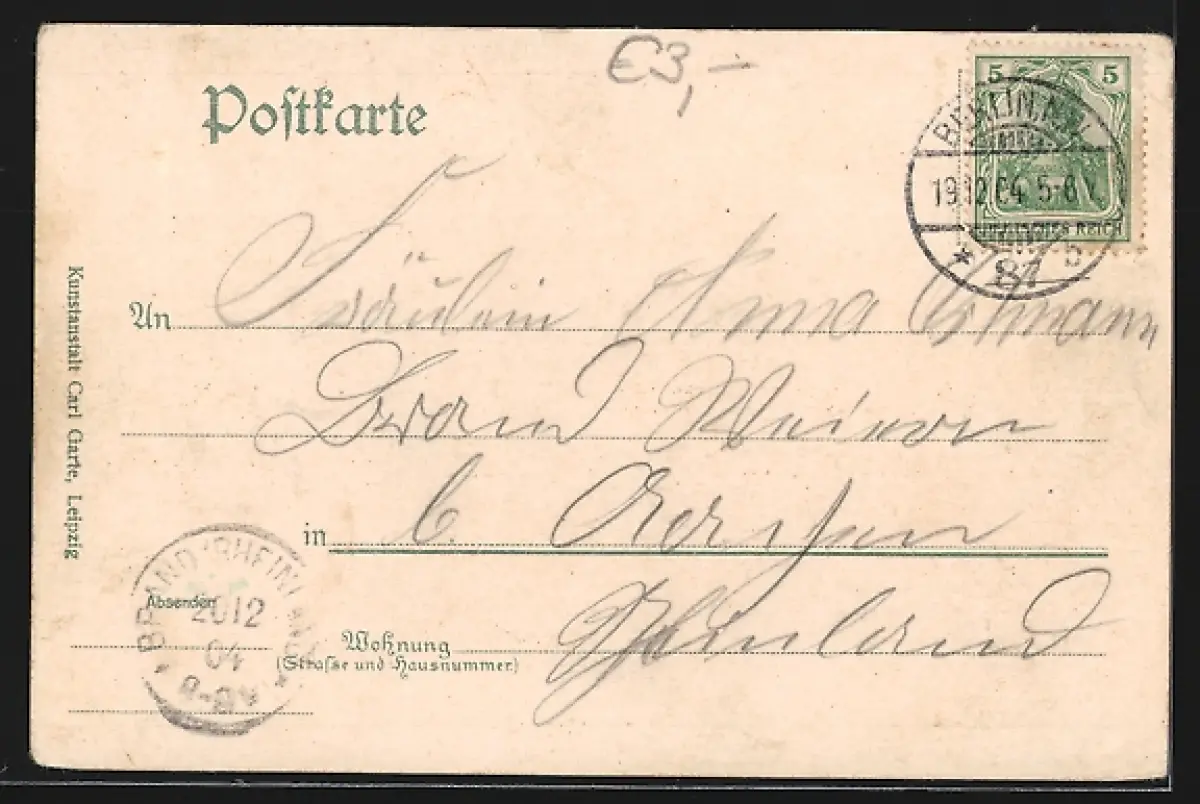 €3,-
Postkarte
5 5
BERLIN, N.W.
19.12.04. 5-6 V.
DEUTSCHES REICH
* 87 b
An Fräulein Anna
Brand
in b. Aachen
Rheinland
Wohnung
(Strasse und Hausnummer)
Absender
BRAND (RHEINLAND)
20 12
04
8-9V
Kunstanstalt Carl Garte, Leipzig